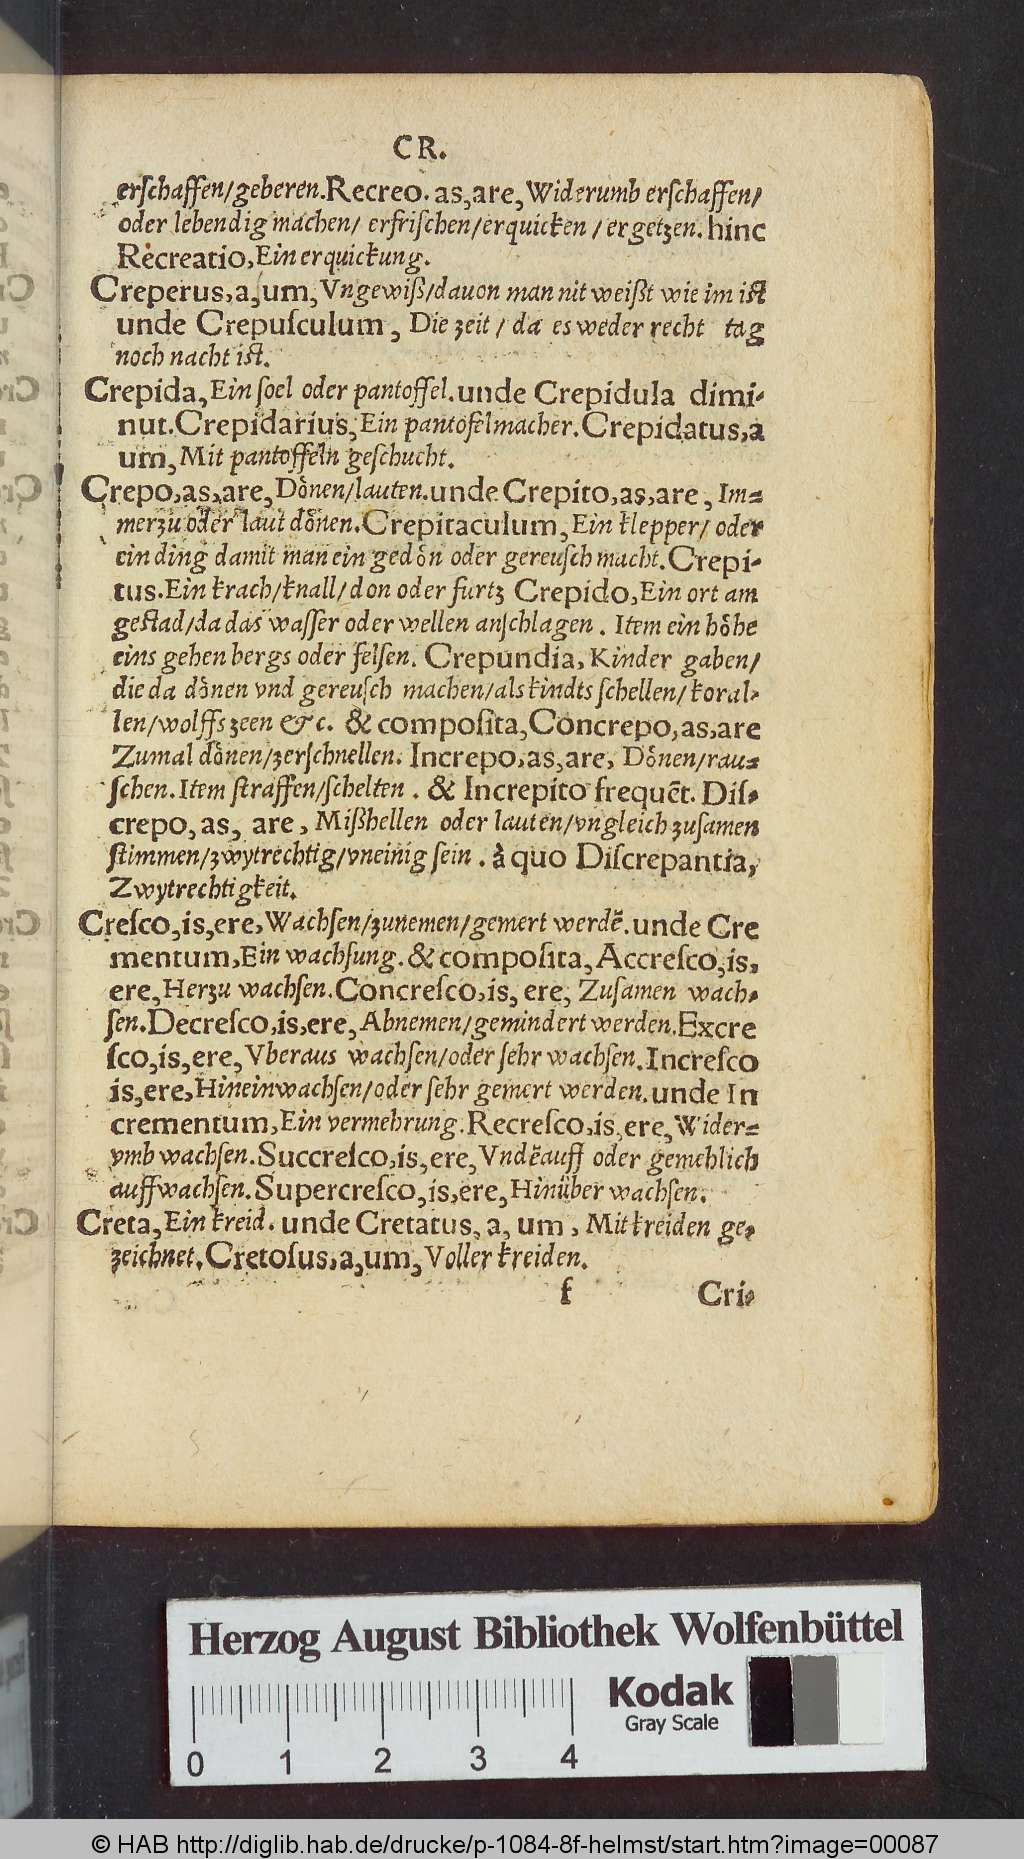 CR.
erſchaffen/geberen.Recreo.as,are,Widerumb erſchaffen/
oder lebendig machen/ erfriſchen/erquicken/ergetzen. hinc
Recreatio,Ein erquickung.
Creperus,a,um,Vngewiß/dauon man nit weißt wie im iſt
unde Crepuſculum, Die zeit/ da es weder recht tag
noch nacht iſt.
Crepida,Ein ſoel oder pantoffel.unde Crepidula dimi-
nut.Crepidarius,Ein pantofelmacher.Crepidatus,a
um,Mit pantoffeln geſchucht.
Crepo,as,are,Dönen/lauten.unde Crepito,as,are, Im-
merzu oder laut dönen.Crepitaculum,Ein klepper/ oder
ein ding damit man ein gedön oder gereuſch macht.Crepi-
tus.Ein krach/knall/don oder furtz Crepido,Ein ort am
geſtad/da das waſſer oder wellen anſchlagen. Item ein höhe
eins gehen bergs oder felſen. Crepundia, Kinder gaben/
die da dönen vnd gereuſch machen/als kindts ſchellen/koral-
len/wolffszeen &c. & compoſita,Concrepo,as,are
Zumal dönen/zerſchnellen. Increpo,as,are, Dönen/rau-
ſchen.Item ſtraffen/ſchelten. & Increpito frequēt. Diſ-
crepo,as, are, Mißhellen oder lauten/vngleich zuſamen
ſtimmen/zwytrechtig/vneinig ſein. à quo Diſcrepantia,
Zwytrechtigkeit.
Creſco,is,ere,Wachſen/zunemen/gemert werdē.unde Cre
mentum,Ein wachſung. & compoſita, Accreſco,is,
ere,Herzu wachſen.Concreſco,is, ere, Zuſamen wach-
ſen.Decreſco,is,ere,Abnemen/gemindert werden.Excre
ſco,is,ere,Vberaus wachſen/oder ſehr wachſen.Increſco
is,ere,Hineinwachſen/oder ſehr gemert werden.unde In
crementum,Ein vermehrung.Recreſco,is,ere,Wider-
vmb wachſen.Succreſco,is,ere,Vndēauff oder gemehlich
auffwachſen.Supercreſco,is,ere,Hinüber wachſen.
Creta,Ein kreid. unde Cretatus, a, um, Mit kreiden ge-
zeichnet.Cretoſus,a,um,Voller kreiden.
f Cri-
Herzog August Bibliothek Wolfenbüttel
Kodak
Gray Scale
0 1 2 3 4
© HAB http://diglib.hab.de/drucke/p-1084-8f-helmst/start.htm?image=00087